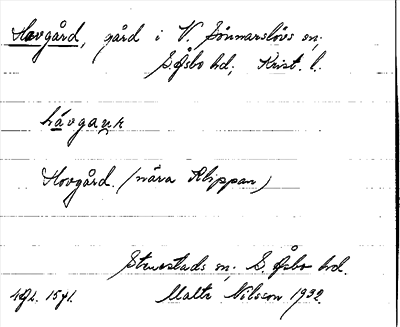 Hovgård, gård i V. Sönnarslövs sn;
S. Åsbo hd; Krist. l.
hávgaʀ
Hovgård. (nära Klippan)
Stenestads sn; S. Åsbo hd.
Malte Nilsson 1932